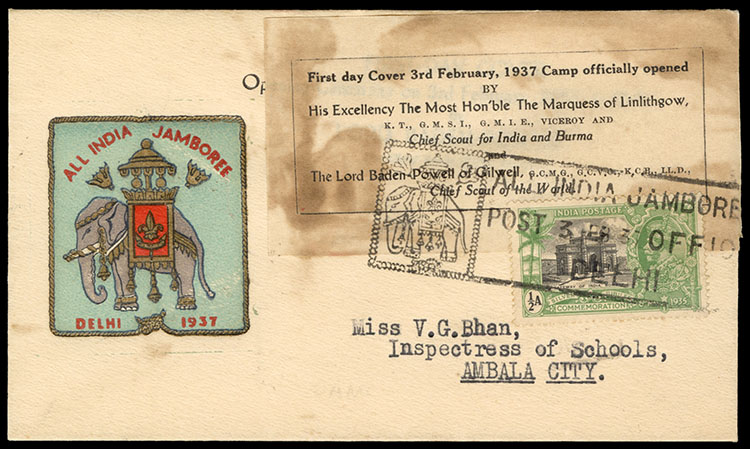 First day Cover 3rd February, 1937 Camp officially opened
BY
His Excellency The Most Hon'ble The Marquess of Linlithgow,
K. T., G. M. S. I., G. M. I. E., VICEROY AND
Chief Scout for India and Burma
and
The Lord Baden-Powell of Gilwell, G.C.M.G., G.C.V.O., K.C.B., LL.D.,
Chief Scout of the World
ALL INDIA JAMBOREE
DELHI 1937
INDIA JAMBORE
POST 3 FEB 3 OFFIC
DELHI
INDIA POSTAGE
½A
SILVER
COMMEMORATION
1935
Miss V.G.Bhan,
Inspectress of Schools,
AMBALA CITY.